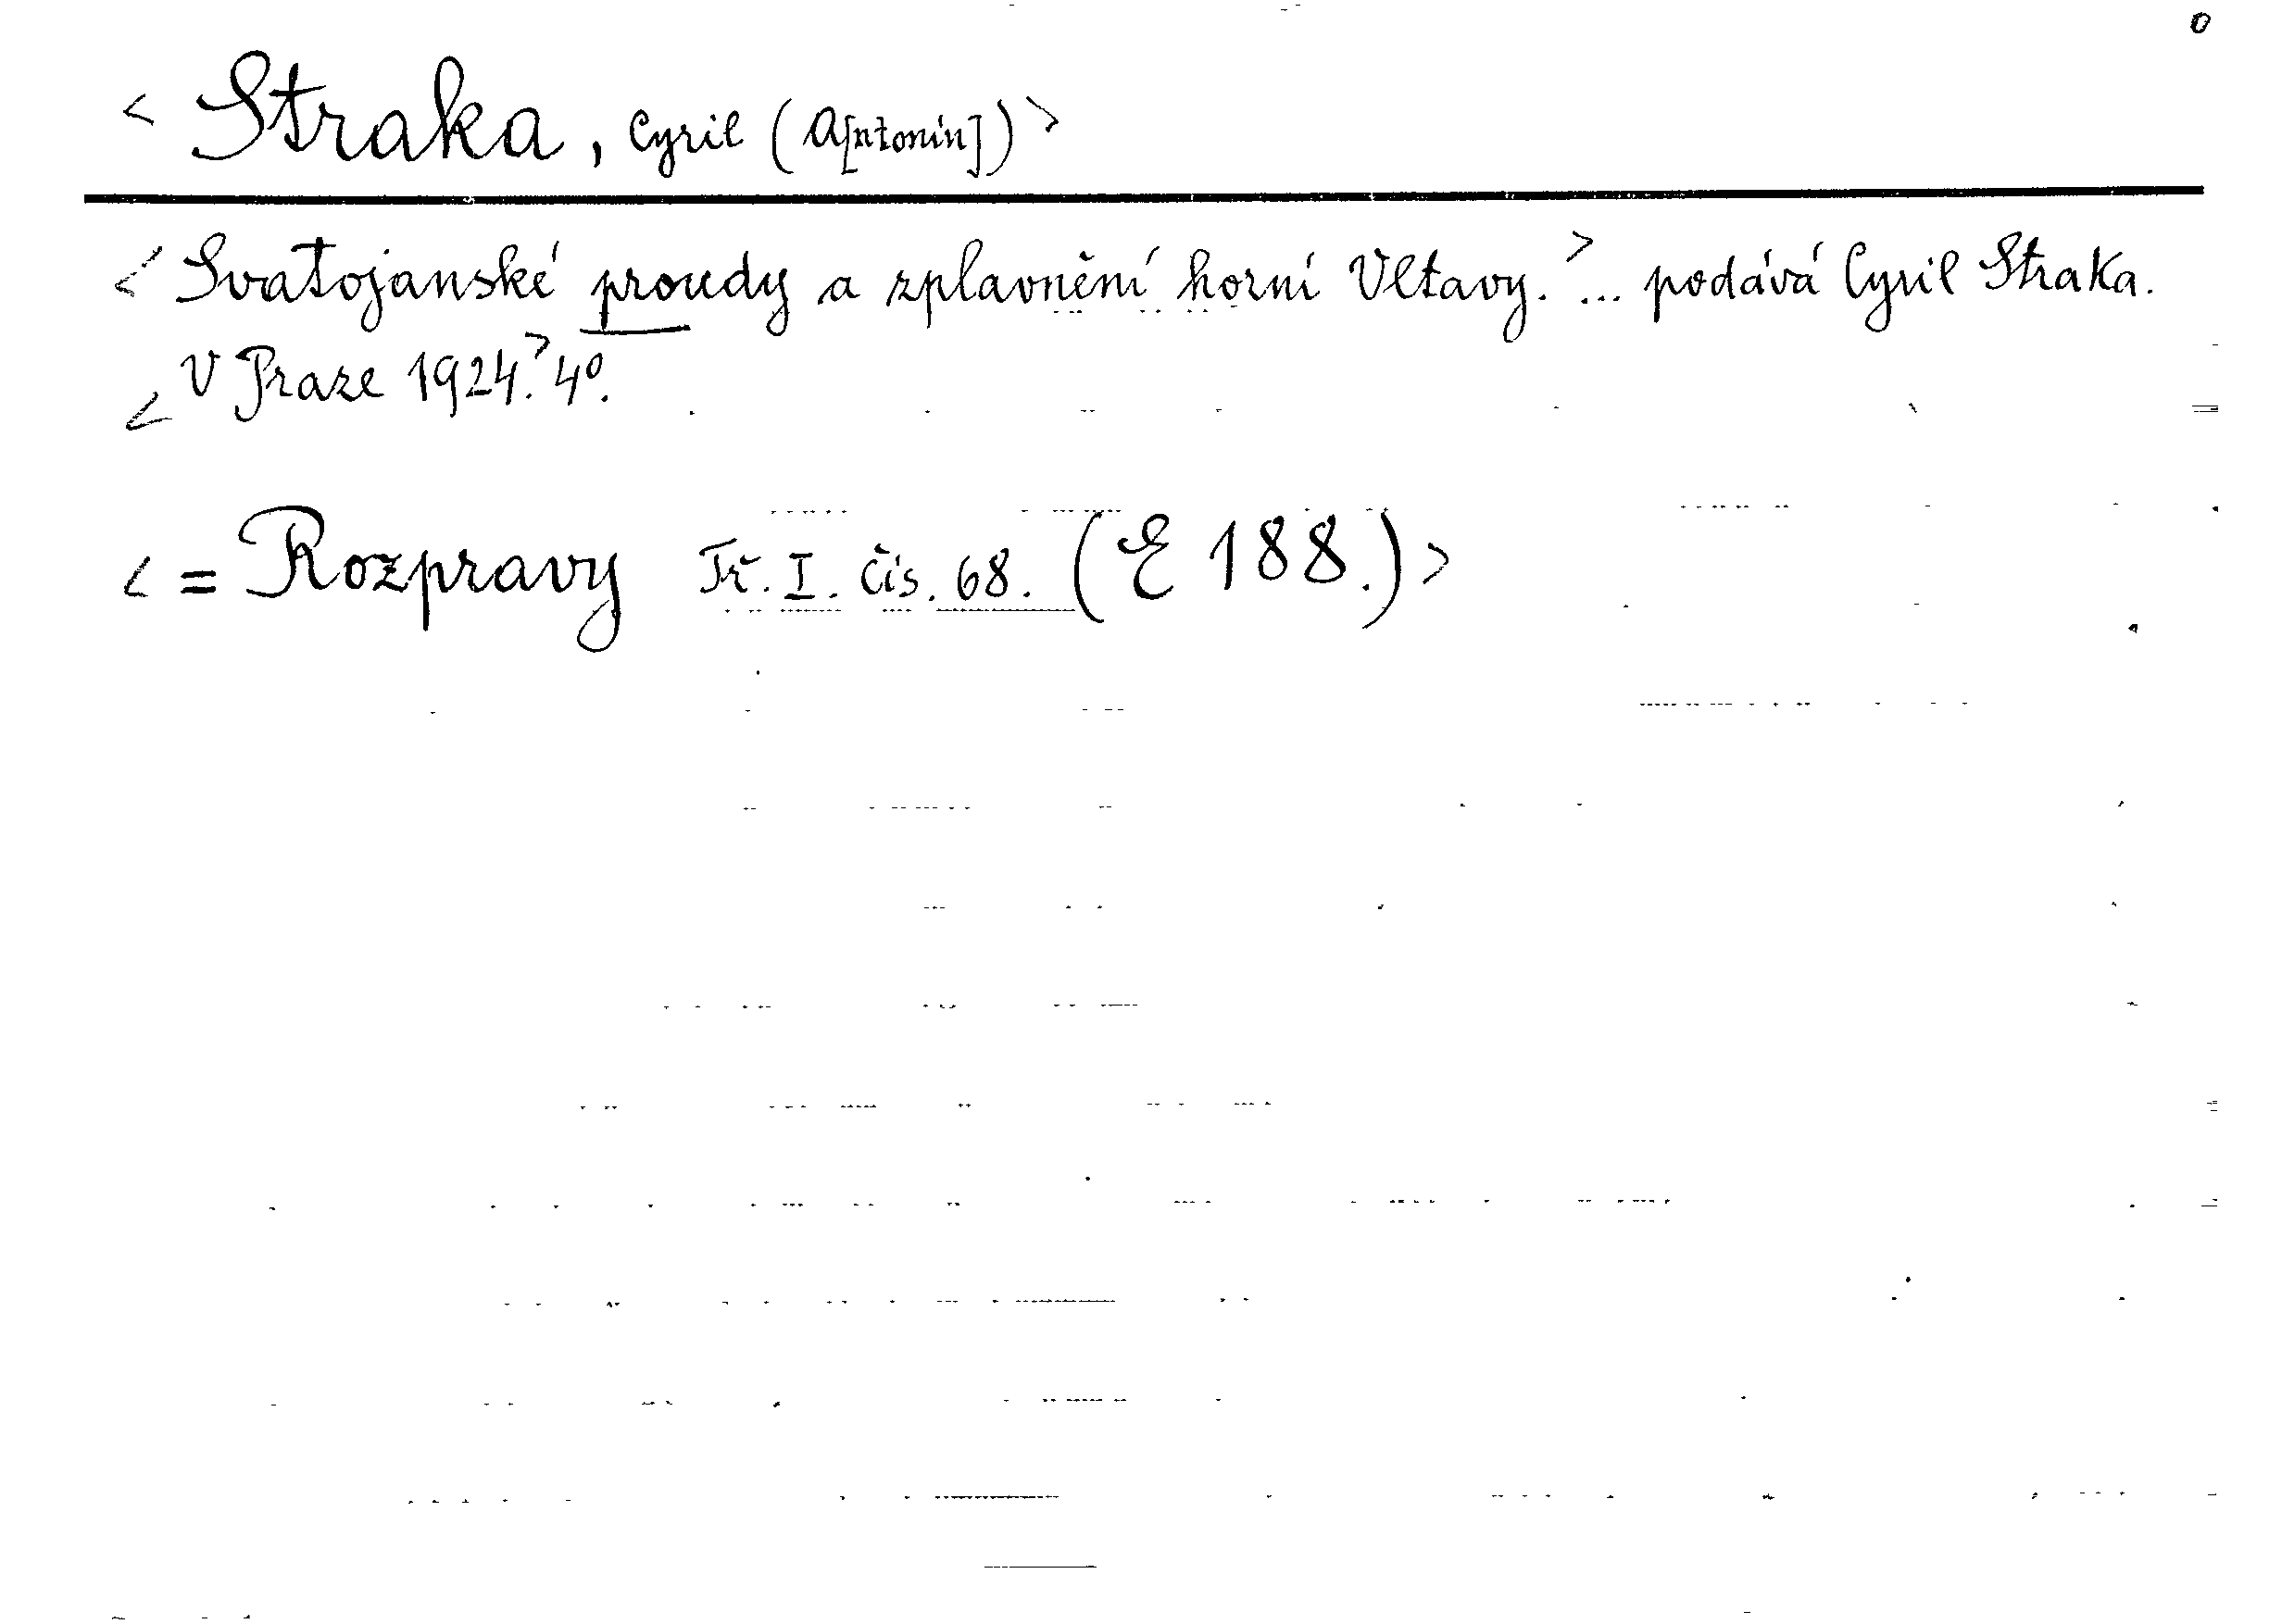 0
< Straka, Cyril (A[ntonín]) >
< Svatojanské proudy a zplavnění horní Vltavy. > ... podává Cyril Straka.
< V Praze 1924. > 4°.
< = Rozpravy Tř. I. čís. 68. (E 188.) >